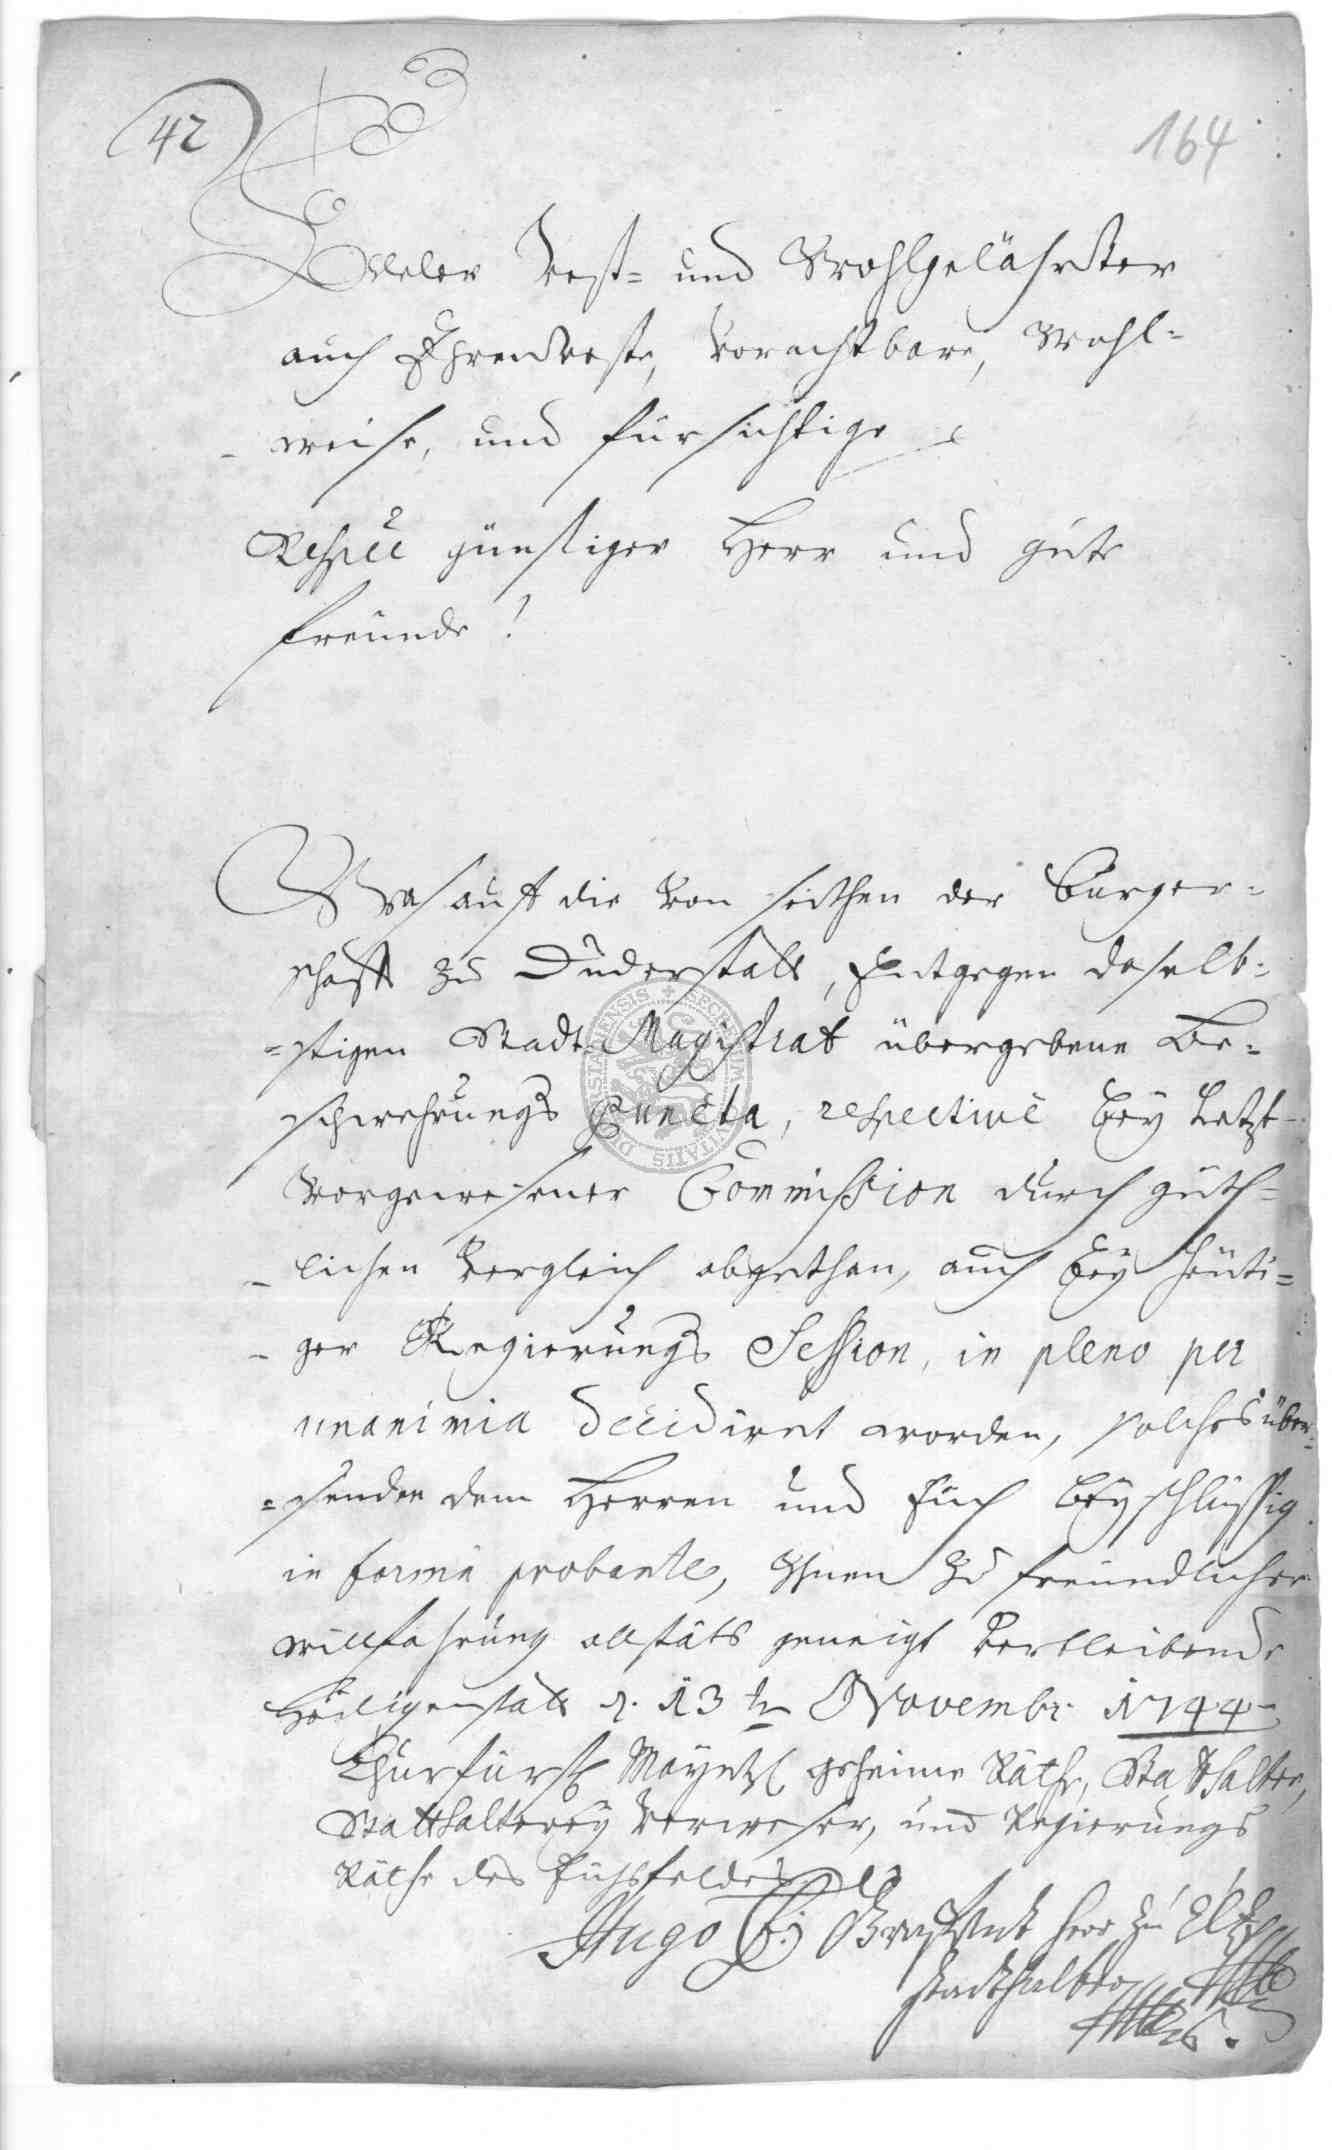 42
164
Edeler Vest= und Wohlgelährter
auch Ehrenveste, Vorachtbare, Wohl=
weise, und fürsichtige
Respve günstiger Herr und gute
freunde!
Was auff die von seithen der Burger=
schafft zu Duderstatt, Entgegen daselb=
=stigen Stadt Magistrat übergebene Be=
schwehrungs Puncta, respectivè bey letzt
vorgewesener Commission durch güth=
lichen Vergleich abgethan, auch bey heüti=
ger Regierungs Session, in pleno per
unanimia decidiret worden, solches über=
=senden dem Herren und Euch beyschlüssig
in formâ probante, Ihnen zu freündlicher
willfahrung allstäts geneigt verbleibende
Heiligenstatt d. 13ten Novembr. 1744
Churfürstl Mayntzl geheime Räthe, Statthalter,
Statthalterey Verweser, und Regierungs
Räthe des Eichsfeldes
Hugo Graff und Herr zu Eltz
Stadthalter
SIGILLUM SECRETUM CIVITATIS DUDERSTADIENSIS